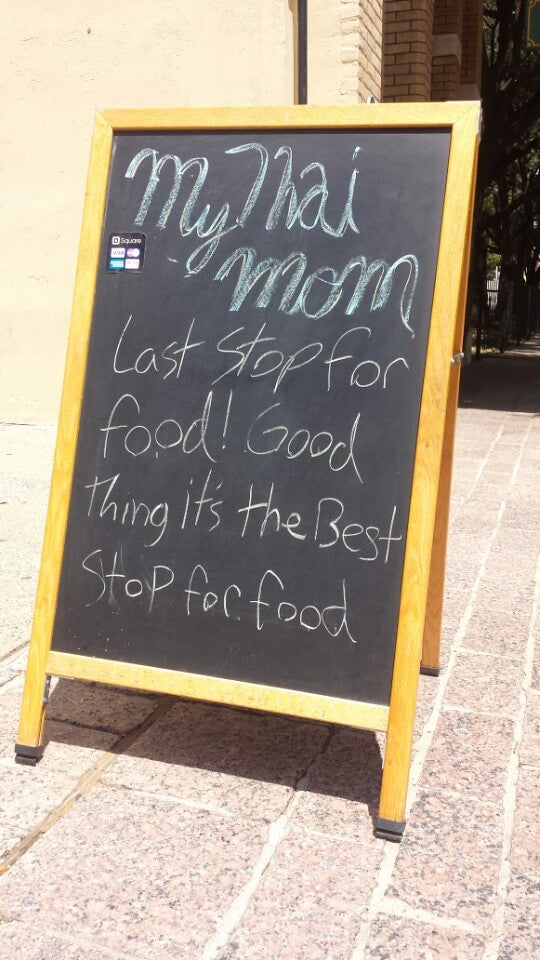 My Thai
Mom
Square
VISA
Last Stop for
food! Good
thing it's the Best
Stop for food